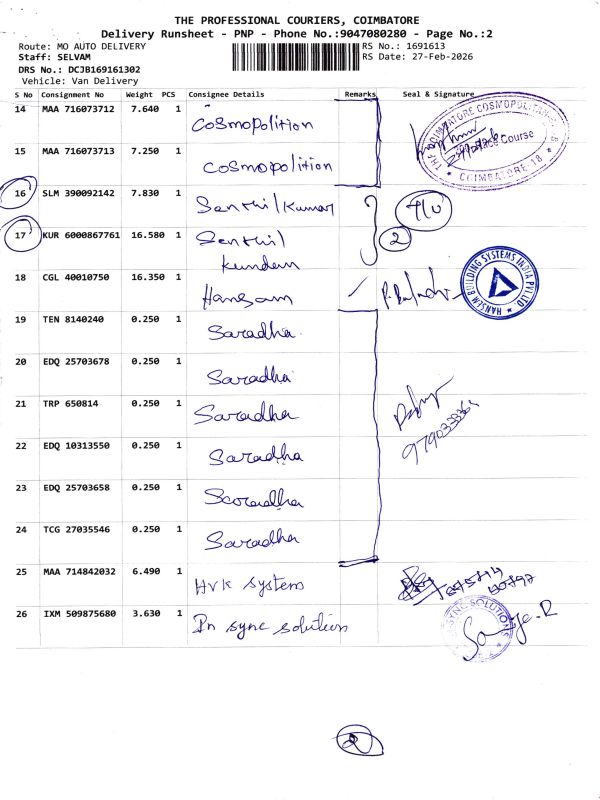 THE PROFESSIONAL COURIERS, COIMBATORE
Delivery Runsheet - PNP - Phone No.:9047080280 - Page No.:2
Route: MO AUTO DELIVERY
RS No.: 1691613
Staff: SELVAM
RS Date: 27-Feb-2026
DRS No.: DCJB169161302
Vehicle: Van Delivery
S No Consignment No Weight PCS Consignee Details Remarks Seal & Signature
14 MAA 716073712 7.640 1 Cosmopolition
15 MAA 716073713 7.250 1 Cosmopolition
THE COIMBATORE COSMOPOLITAN
Course
COIMBATORE-18
16 SLM 390092142 7.830 1 Senthil Kumar
17 KUR 6000867761 16.580 1 Senthil 2
18 CGL 40010750 16.350 1 Hansam
HANSEM BUILDING SYSTEMS INDIA PVT LTD
19 TEN 8140240 0.250 1 Saradha
20 EDQ 25703678 0.250 1 Saradha
21 TRP 650814 0.250 1 Saradha
22 EDQ 10313550 0.250 1 Saradha
23 EDQ 25703658 0.250 1 Saradha
24 TCG 27035546 0.250 1 Saradha
25 MAA 714842032 6.490 1 HVK Systems
26 IXM 509875680 3.630 1 In sync solution
SYNC SOLUTIONS
2